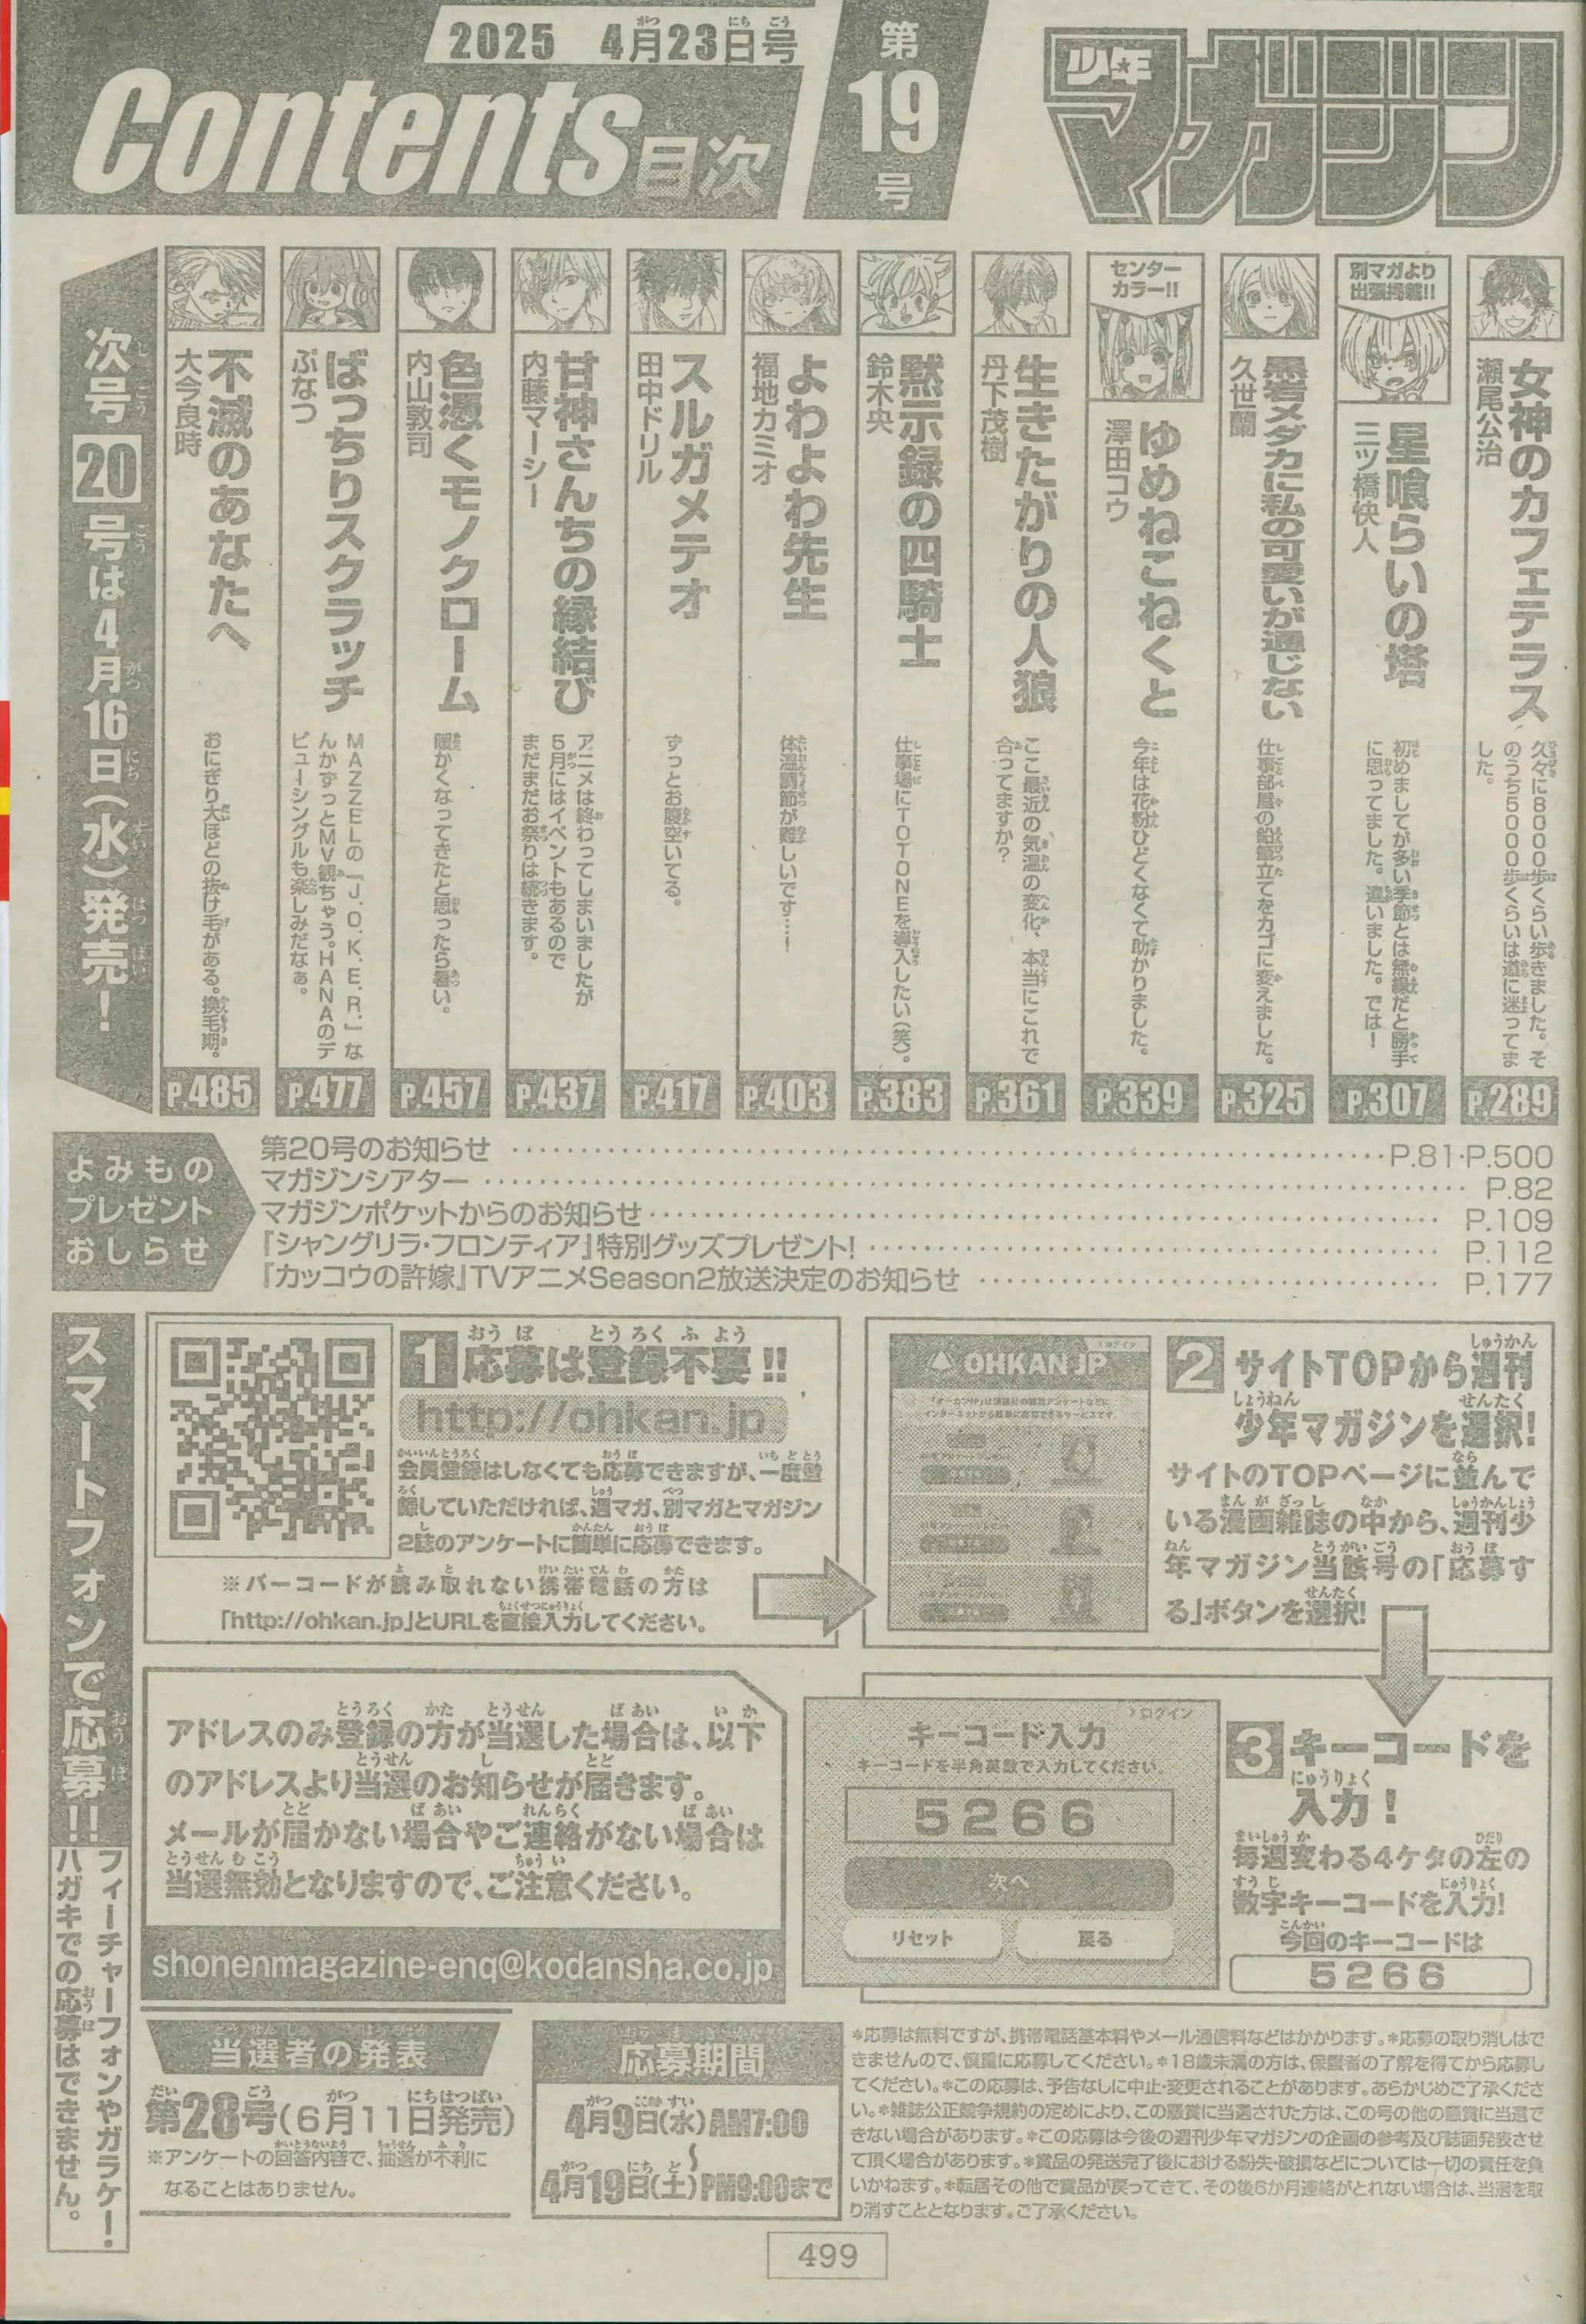 2025 4月23日号
Contents目次
第19号
少年マガジン
女神のカフェテラス
瀬尾公治
久々に8000歩くらい歩きました。そ
のうち5000歩くらいは道に迷ってま
した。
P.289
別マガより
出張掲載!!
星喰らいの塔
三ツ橋快人
初めましてが多い季節とは無縁だと勝手
に思ってました。違いました。では!
P.307
黒岩メダカに私の可愛いが通じない
久世蘭
仕事部屋の鉛筆立てをカゴに変えました。
P.325
センター
カラー!!
ゆめねこねくと
澤田コウ
今年は花粉ひどくなくて助かりました。
P.339
生きたがりの人狼
丹下茂樹
ここ最近の気温の変化、本当にこれで
合ってますか?
P.361
黙示録の四騎士
鈴木央
仕事場にTOTONEを導入したい(笑)。
P.383
よわよわ先生
福地カミオ
体温調節が難しいです…!
P.403
スルガメテオ
田中ドリル
ずっとお腹空いてる。
P.417
甘神さんちの縁結び
内藤マーシー
アニメは終わってしまいましたが
5月にはイベントもあるので
まだまだお祭りは続きます。
P.437
色憑くモノクローム
内山敦司
暖かくなってきたと思ったら暑い。
P.457
ばっちりスクラッチ
ぷなつ
MAZZELの「J.O.K.E.R.」な
んかずっとMV観ちゃう。HANAのデ
ビューシングルも楽しみだなぁ。
P.477
不滅のあなたへ
大今良時
おにぎり大ほどの抜け毛がある。換毛期。
P.485
次号20号は4月16日(水)発売!
よみもの
プレゼント
おしらせ
第20号のお知らせ P.81・P.500
マガジンシアター P.82
マガジンポケットからのお知らせ P.109
『シャングリラ・フロンティア』特別グッズプレゼント! P.112
『カッコウの許嫁』TVアニメSeason2放送決定のお知らせ P.177
スマートフォンで応募!!
フィーチャーフォンやガラケー・
ハガキでの応募はできません。
1 応募は登録不要!!
http://ohkan.jp
会員登録はしなくても応募できますが、一度登
録していただければ、週マガ、別マガとマガジン
2誌のアンケートに簡単に応募できます。
※バーコードが読み取れない携帯電話の方は
「http://ohkan.jp」とURLを直接入力してください。
›ログイン
OHKAN.JP
2 サイトTOPから週刊
少年マガジンを選択!
サイトのTOPページに並んで
いる漫画雑誌の中から、週刊少
年マガジン当該号の「応募す
る」ボタンを選択!
アドレスのみ登録の方が当選した場合は、以下
のアドレスより当選のお知らせが届きます。
メールが届かない場合やご連絡がない場合は
当選無効となりますので、ご注意ください。
shonenmagazine-enq@kodansha.co.jp
›ログイン
キーコード入力
キーコードを半角英数で入力してください。
5266
次へ
リセット 戻る
3 キーコードを
入力!
毎週変わる4ケタの左の
数字キーコードを入力!
今回のキーコードは
5266
当選者の発表
第28号(6月11日発売)
※アンケートの回答内容で、抽選が不利に
なることはありません。
応募期間
4月9日(水)AM7:00
〜
4月19日(土)PM9:00まで
*応募は無料ですが、携帯電話基本料やメール通信料などはかかります。*応募の取り消しはで
きませんので、慎重に応募してください。*18歳未満の方は、保護者の了解を得てから応募し
てください。*この応募は、予告なしに中止・変更されることがあります。あらかじめご了承くださ
い。*雑誌公正競争規約の定めにより、この懸賞に当選された方は、この号の他の懸賞に当選で
きない場合があります。*この応募は今後の週刊少年マガジンの企画の参考及び誌面発表させ
て頂く場合があります。*賞品の発送完了後における紛失・破損などについては一切の責任を負
いかねます。*転居その他で賞品が戻ってきて、その後6か月連絡がとれない場合は、当選を取
り消すこととなります。ご了承ください。
499